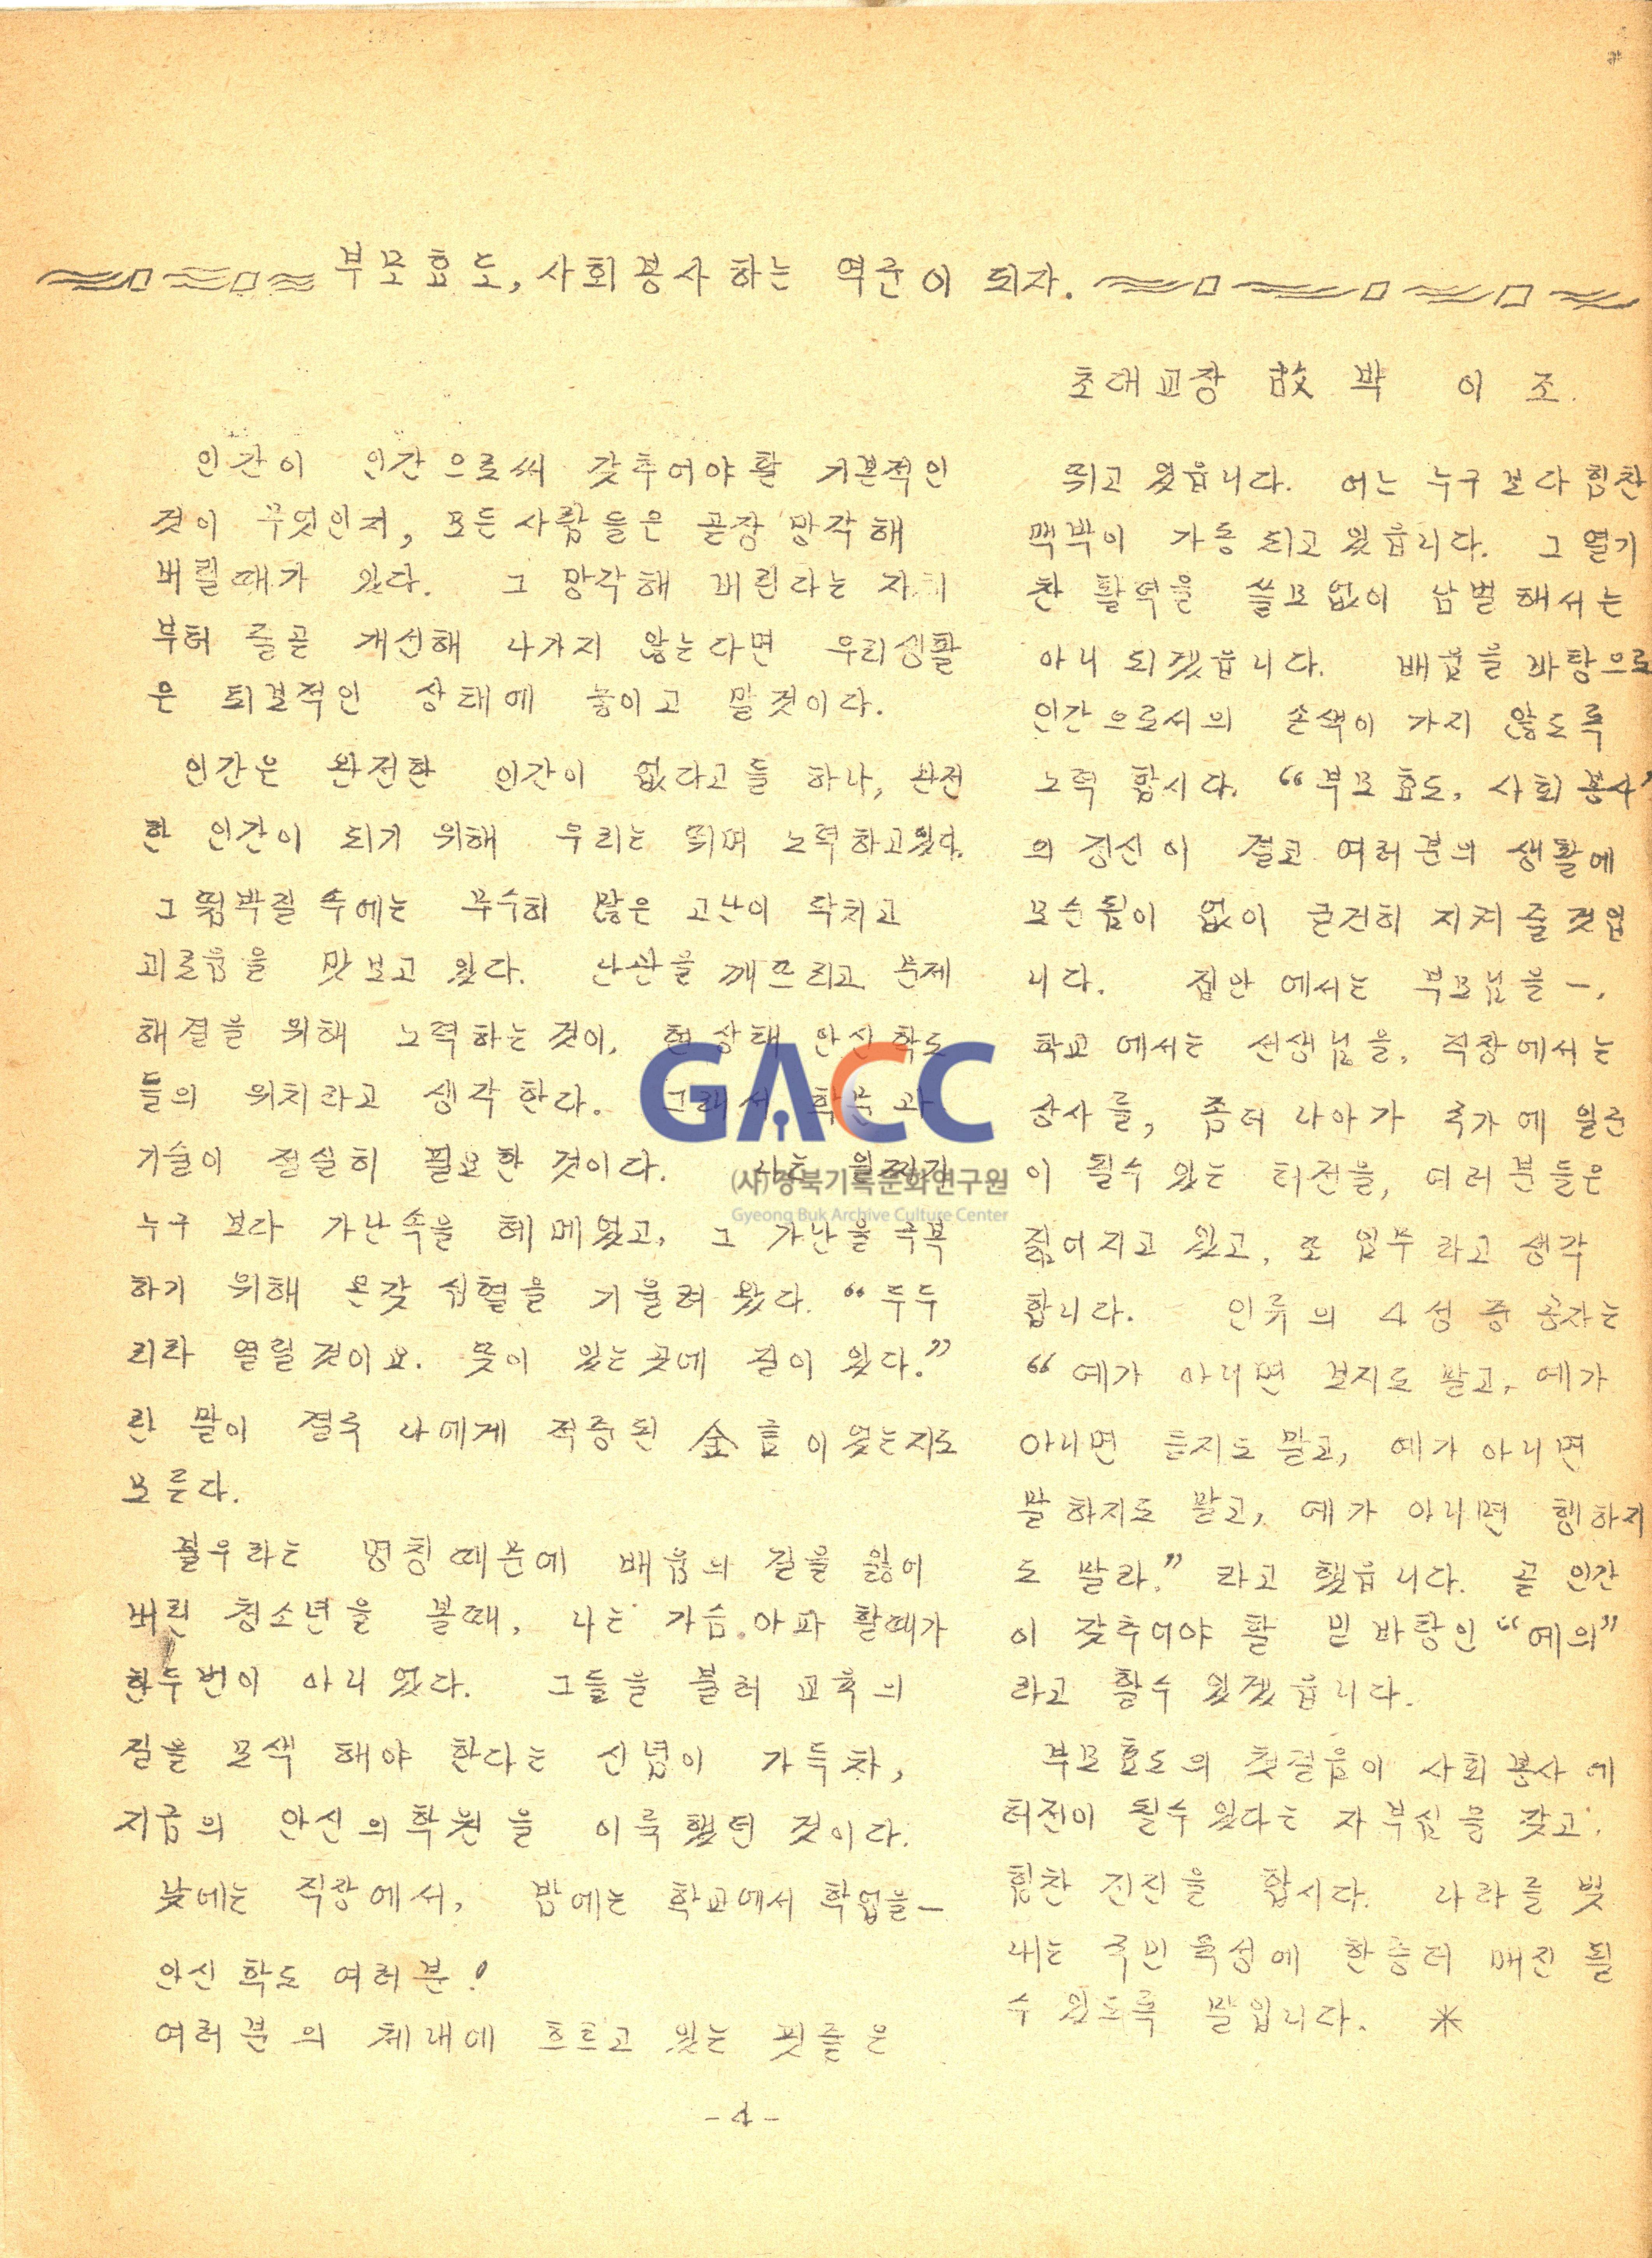 부모효도, 사회봉사하는 역군이 되자.
초대교장 故 박 이 조.
인간이 인간으로써 갖추어야 할 기본적인
것이 무엇인지, 모든사람들은 곧장 망각해
버릴때가 있다. 그 망각해 버린다는 자체
부터 줄곧 개선해 나가지 않는다면 우리생활
은 퇴보적인 상태에 놓이고 말것이다.
인간은 완전한 인간이 없다고들 하나, 완전
한 인간이 되기 위해 우리는 뛰며 노력하고있다.
그 뜀박질 속에는 무수히 많은 고난이 닥치고
괴로움을 맛보고 있다. 난관을 깨뜨리고 문제
해결을 위해 노력하는 것이, 현 상태 안신 학도
들의 위치라고 생각한다. 그래서 학문과
기술이 절실히 필요한 것이다. 나는 일찌기
누구 보다 가난속을 헤메었고, 그 가난을 극복
하기 위해 온갖 심혈을 기울려 왔다. “두두
리라 열릴것이요. 뜻이 있는곳에 길이 있다.”
란 말이 결국 나에게 적중된 金言이었는지도
모른다.
불우라는 명칭때문에 배움의 길을 잃어
버린 청소년을 볼때, 나는 가슴 아파 할때가
한두번이 아니었다. 그들을 불러 교육의
길을 모색 해야 한다는 신념이 가득차,
지금의 안신의학원을 이룩했던 것이다.
낮에는 직장에서, 밤에는 학교에서 학업을—
안신 학도 여러분!
여러분의 체내에 흐르고 있는 핏줄은
뛰고 있읍니다. 어느 누구보다 힘찬
맥박이 가동되고 있읍니다. 그 열기
찬 활력을 쓸모없이 남벌해서는
아니 되겠읍니다. 배움을 바탕으로
인간으로서의 손색이 가지 않도록
노력 합시다. “부모효도, 사회봉사”
의 정신이 결코 여러분의 생활에
모순됨이 없이 굳건히 지켜 줄 것입
니다. 집안에서는 부모님을—,
학교 에서는 선생님을, 직장에서는
상사를, 좀더 나아가 국가에 일군
이 될수 있는 터전을, 여러분들은
짊어지고 있고, 또 임무라고 생각
합니다. 인류의 4성중 공자는
“예가 아니면 보지도 말고, 예가
아니면 듣지도 말고, 예가 아니면
말하지도 말고, 예가 아니면 행하지
도 말라.” 라고 했읍니다. 곧 인간
이 갖추어야 할 밑바탕인 “예의”
라고 할수 있겠읍니다.
부모효도의 첫걸음이 사회봉사에
터전이 될수있다는 자부심을 갖고
힘찬 전진을 합시다. 나라를 빛
내는 국민육성에 한층더 매진 될
수 있도록 말입니다. ＊
-4-
GACC
(사)경북기록문화연구원
Gyeong Buk Archive Culture Center